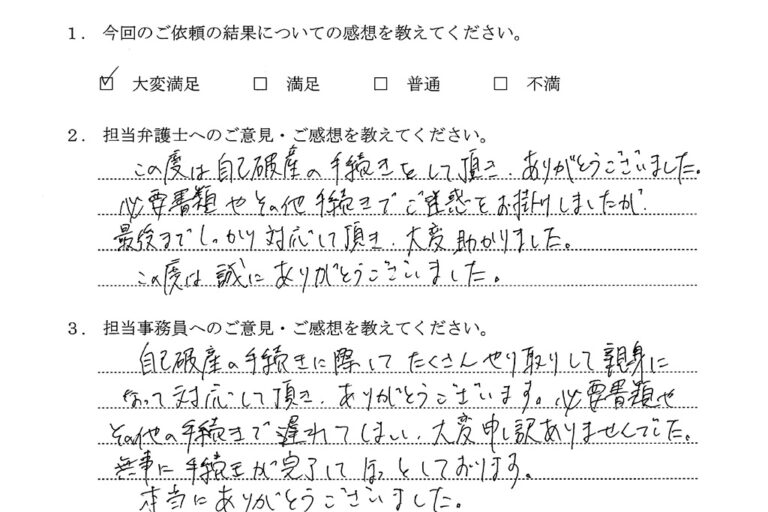 1. 今回のご依頼の結果についての感想を教えてください。
☑ 大変満足 □ 満足 □ 普通 □ 不満
2. 担当弁護士へのご意見・ご感想を教えてください。
この度は自己破産の手続きをして頂き、ありがとうございました。
必要書類やその他手続きでご迷惑をお掛けしましたが、
最後までしっかり対応して頂き、大変助かりました。
この度は誠にありがとうございました。
3. 担当事務員へのご意見・ご感想を教えてください。
自己破産の手続きに際してたくさんやり取りして親身に
なって対応して頂き、ありがとうございます。必要書類や
その他の手続きで遅れてしまい、大変申し訳ありませんでした。
無事に手続きが完了してほっとしております。
本当にありがとうございました。